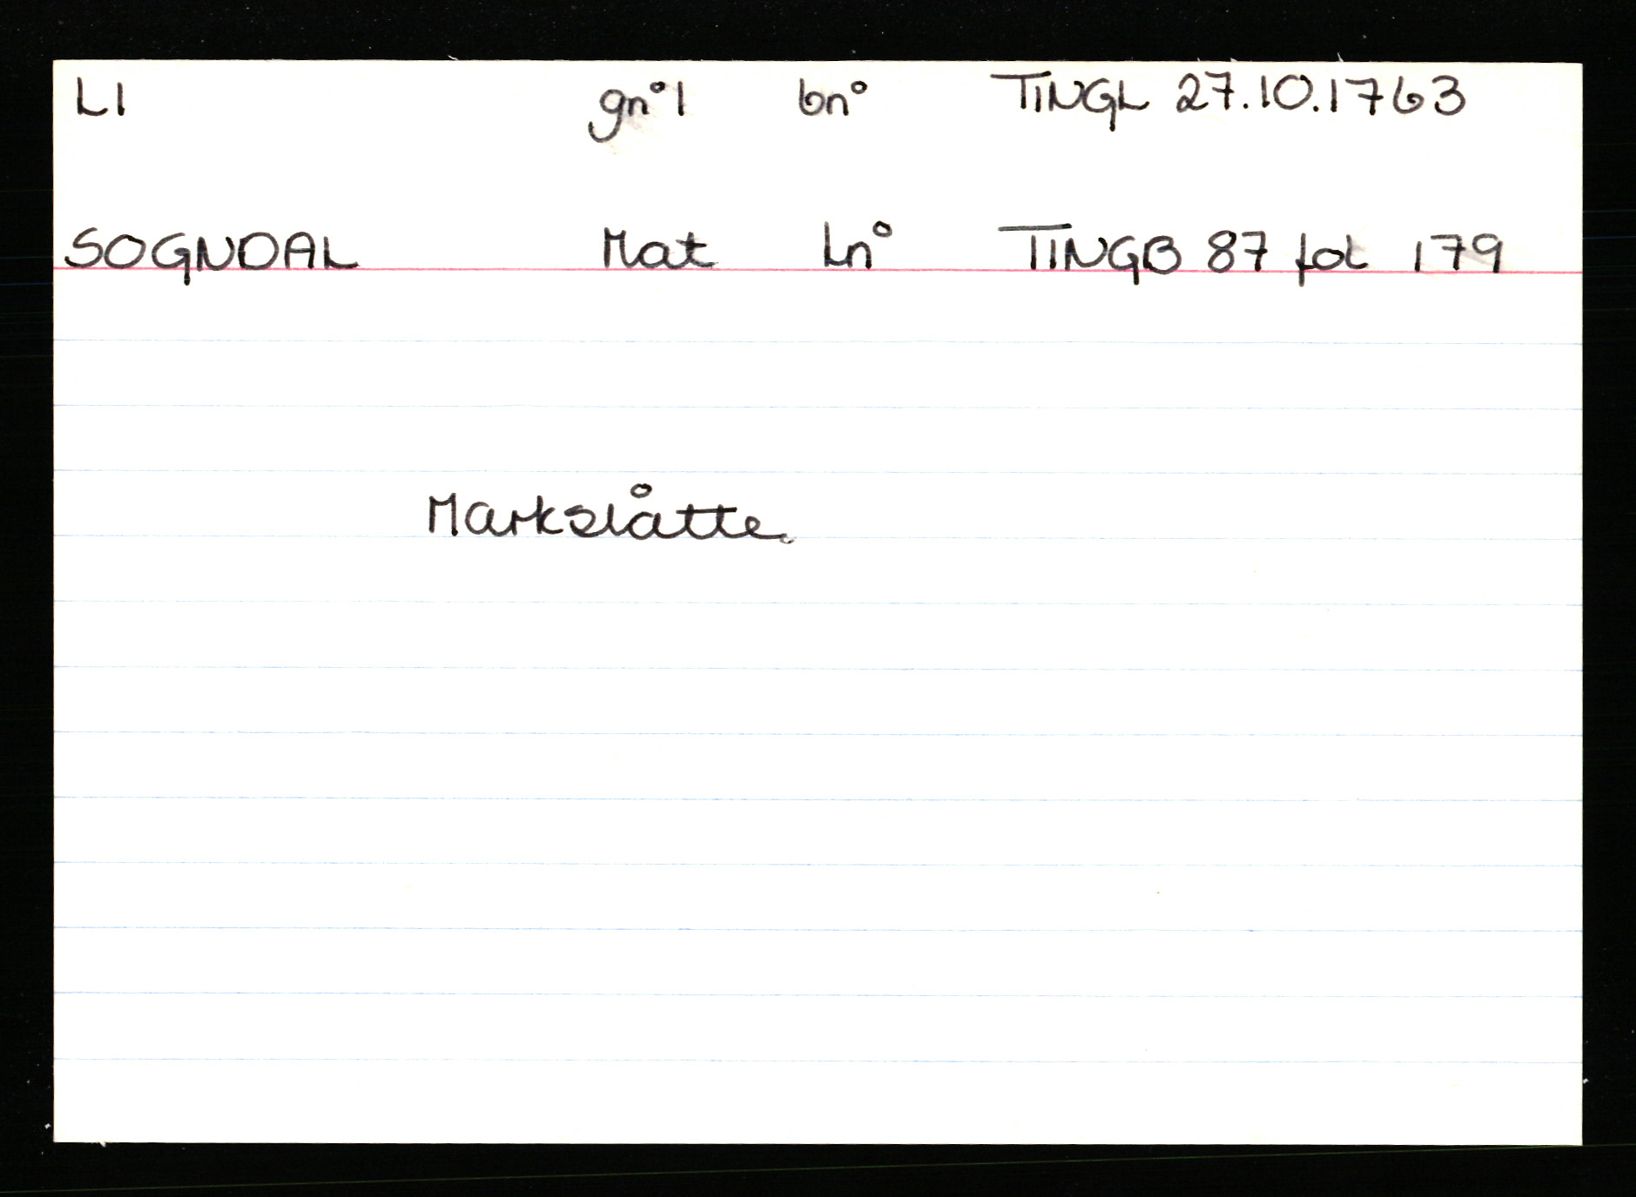 LI gn° 1 bn° TINGL 27.10.1763
SOGNDAL Mat Ln° TINGB 87 fol 179
Markslåtte.